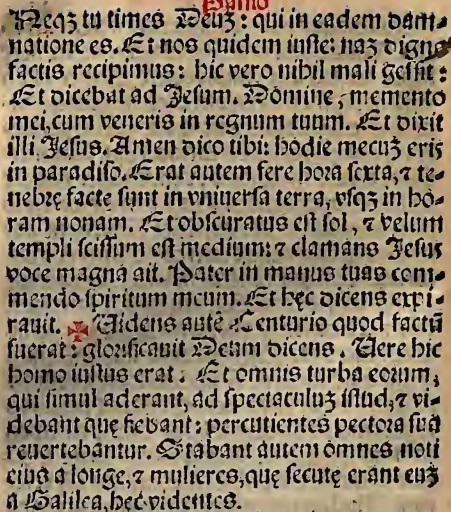 Neqꝫ tu times Deuꝫ: qui in eadem dam-
natione es. Et nos quidem iuste: naꝫ digna
factis recipimus: hic vero nihil mali gessit:
Et dicebat ad Jesum. Domine, memento
mei, cum veneris in regnum tuum. Et dixit
illi Jesus. Amen dico tibi: hodie mecuꝫ eris
in paradiso. Erat autem fere hora sexta, ⁊ te-
nebrę facte sunt in vniuersa terra, vsqꝫ in ho-
ram nonam. Et obscuratus est sol, ⁊ velum
templi scissum est medium: ⁊ clamans Jesus
voce magna ait. Pater in manus tuas com-
mendo spiritum meum. Et hęc dicens expi-
rauit. ✠ Uidens autē Centurio quod factū
fuerat: glorificauit Deum dicens. Uere hic
homo iustus erat: Et omnis turba eorum,
qui simul aderant, ad spectaculuꝫ istud, ⁊ vi-
debant quę fiebant: percutientes pectora sua
reuertebantur. Stabant autem omnes noti
eius a longe, ⁊ mulieres, quę secutę erant euꝫ
a Galilea, hęc videntes.